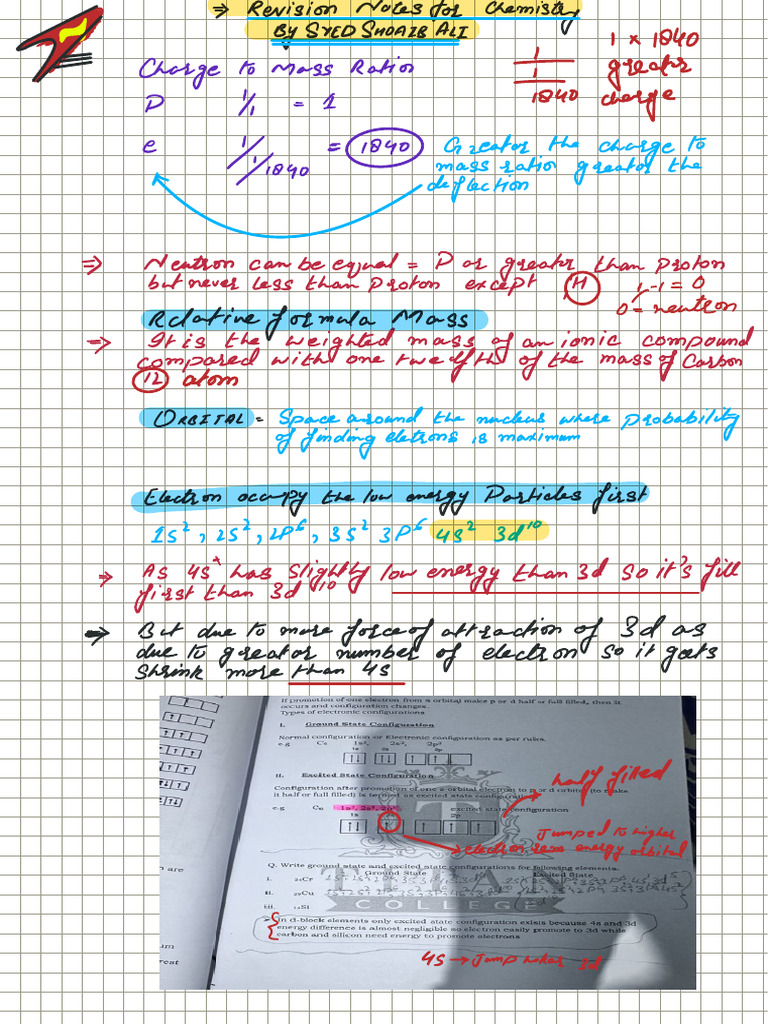 ⇒ Revision Notes for Chemistry
By Syed Shoaib Ali
Charge to Mass Ration
P 1/1 = 1
e 1/1/1840 = 1840
1
1
1840
1 × 1840
greater
charge
Greator the charge to
mass ratior greator the
deflection
⇒ Neutron can be equal = P or greater than proton
but never less than proton except H
1 - 1 = 0
0 = neutron
Relative formula Mass
⇒ It is the weighted mass of an ionic compound
compared with one twelfth of the mass of Carbon
12 atom
Orbital = Space around the nucleus where probability
of finding eletrons is maximum
Electron occupy the low energy Particles first
1s², 2s², 2p⁶, 3s² 3p⁶ 4s² 3d¹⁰
⇒ As 4s has slightly low energy than 3d so it's fill
first than 3d¹⁰
⇒ But due to more force of attraction of 3d as
due to greator number of electron so it gets
shrink more than 4s
If promotion of one electron from s orbital make p or d half or full filled, then it
occurs and configuration changes.
Types of electronic configurations
I. Ground State Configuration
Normal configuration or Electronic configuration as per rules.
e.g C₆ 1s², 2s², 2p²
1s 2s 2p
II. Excited State Configuration
Configuration after promotion of one s orbital electron to p or d orbital (to make
it half or full filled) is termed as excited state configuration
half filled
e.g C₆ 1s², 2s¹, 2p³ excited state configuration
1s 2p
Jumped to higher
energy orbital
electron
Q. Write ground state and excited state configurations for following elements.
Ground State Excited State
i. ₂₄Cr
ii. ₂₉Cu
iii. ₁₄Si
COLLEGE
In d-block elements only excited state configuration exists because 4s and 3d
energy difference is almost negligible so electron easily promote to 3d while
carbon and silicon need energy to promote electrons
4s → Jump 3d